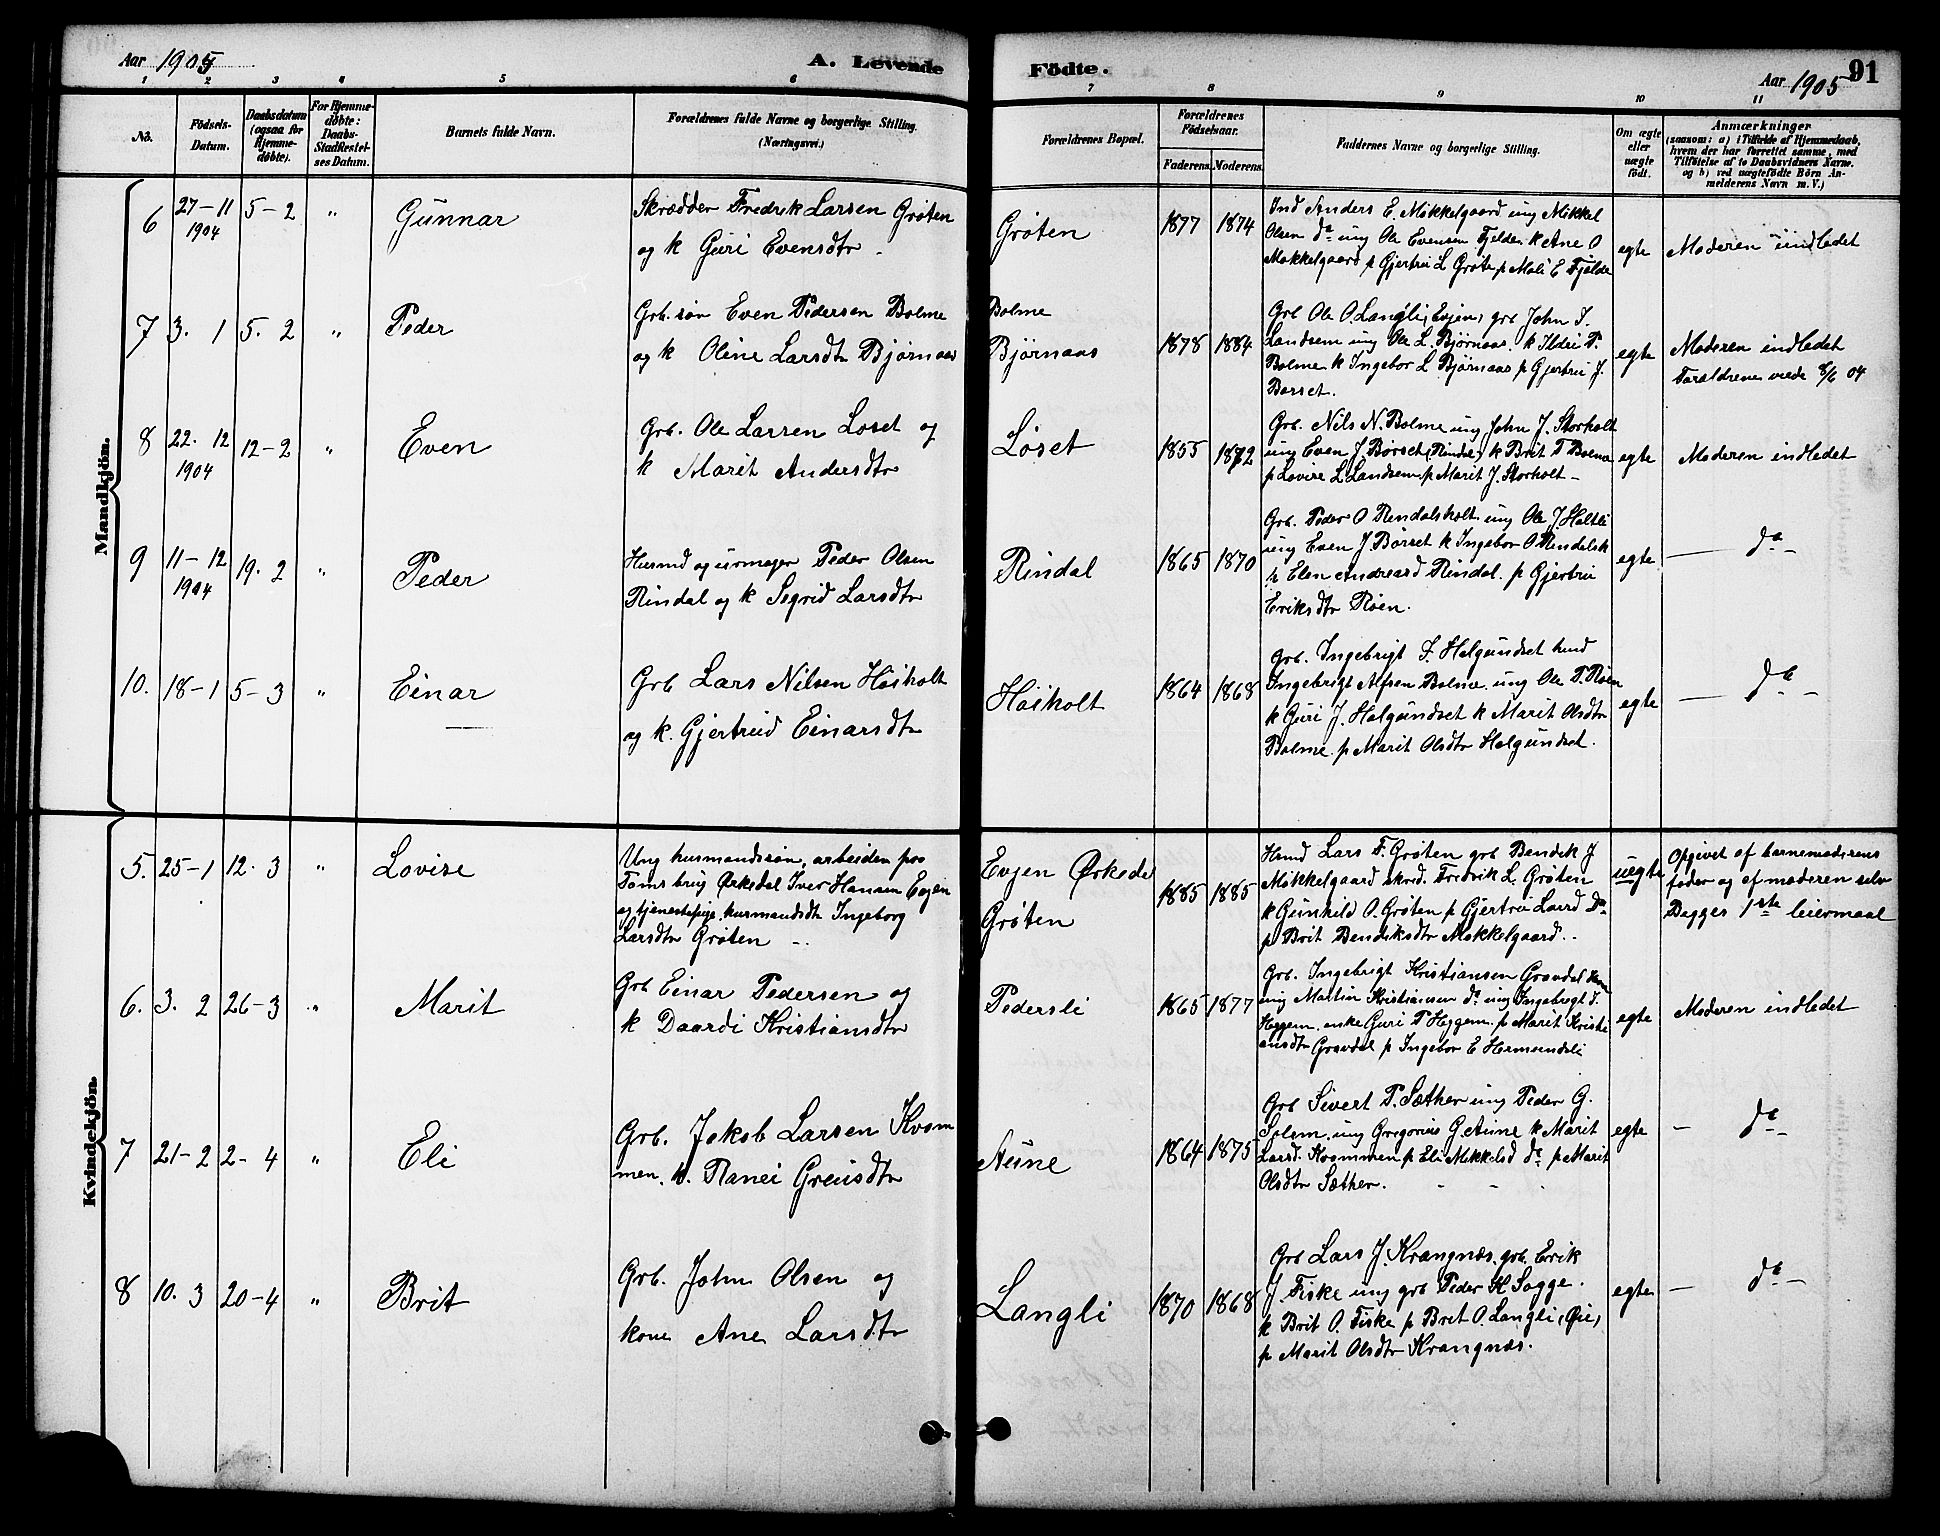 Aar 1905 A. Levende
Födte. Aar 1905 91
1 2 3 4 5 6 7 8 9 10 11
No. Födsels-Datum. Daabsdatum (ogsaa for Hjemme-døbte). For Hjemme-døbte: Daabs-Stadfestel-ses Datum. Barnets fulde Navn. Forældrenes fulde Navne og borgerlige Stilling. (Næringsvei.)
Forældrenes Bopæl. Forældrenes Födselsaar. Faderens Moderens Faddernes Navne og borgerlige Stilling. Om ægte eller uægte födt. Anmærkninger
(saasom: a) i Tilfælde af Hjemmedaab, hvem der har forrettet samme, med Tilföielse af to Daabsvidners Navne, og b) ved uægtefödte Börn An-melderens Navn m. V.)
Mandkjön.
6 27-11 1904 5-2 " Gunnar
Skrædder Fredrik Larsen Grøten
og k Guri Evensdtr
Grøten 1877 1874
Ind Anders E. Mokkelgaard ung Mikkel
Olsen do ung Ole Evensen Fjelde k Ane O
Mokkelgaard p Gjertru L Grøte p Mali E Fjelde
egte Moderen indledet
7 3. 1 5. 2 " Peder
Grb. søn Even Pedersen Bolme
og k Oline Larsdtr Bjørnaas
Bolme
Bjørnaas 1878 1884
Grb Ole O. Langli, Evjen, grb John I.
Landsem ung Ole L. Bjørnaas. k Ildri P.
Bolme k Ingebor L Bjørnaas p Gjertru J.
Børset.
egte Moderen indledet
Foraldrene viede 8/6 04
8 22. 12 1904 12-2 " Even
Grb. Ole Larsen Løset og
k Marit Andersdtr
Løset 1855 1872
Grb. Nils N. Bolme ung John J. Storholt
ung Even J. Børset (Rindal) k Brit T Bolme
p Lovise L Landsem p Marit J. Storholt -
egte Moderen indledet
9 11-12 1904 19. 2 " Peder
Husmd og urmager Peder Olsen
Rindal og k Sigrid Larsdtr
Rindal 1865 1870
Grb. Peder O Rindalsholt ung Ole J. Holtli
ung Even J. Børset k Ingebor O Rindalsh
p Elen Andreasd Rindal. p Gjertru
Eriksdtr Røen.
egte — do -
10. 18-1 5-3 " Einar
Grb Lars Nilsen Høiholt
og k. Gjertrud Einarsdtr
Høiholt 1864 1868
Grb. Ingebrigt I. Helgundset husd
Ingebrigt Alfsen Bolme ung Ole P. Røen
k Guri J. Halgundset k Marit Olsdtr
Bolme p Marit Olsdtr Halgundset.
egte — do -
Kvindekjön.
5. 25-1 12. 3 " Lovise
Ung husmandssøn, arbeiden paa
Toms brug Ørkedal Iver Hansen Evjen
og tjenestepige, husmandsdtr Ingeborg
Larsdtr Grøten
Evjen Ørkedal
Grøten 1885 1885
Husmd Lars F. Grøten grb Bendik J
Mokkelgaard skrd. Fredrik L. Grøten
k Gunhild O. Grøten p Gjertru Larsd Do
p Brit Bendiksdtr Mokkelgaard.
uegte Opgivet af barnemoderens
fader og af moderen selv
Begges 1ste leiermaal
6. 3. 2 26-3 " Marit
Grb Einar Pedersen og
k Daardi Kristiansdtr
Pedersli 1865 1877
Grb. Ingebrigt Kristiansen Gravdal
ung Martin Kristiansen do ung Ingebrigt I.
Heggem. enke Guri T Heggem. p Marit Kristi
ansdtr Gravdal p Ingebor E Hermundsli
egte Moderen indledet
7 21-2 2-4 " Eli
Grb. Jakob Larsen Kvam
men. k. Ranei Greiisdtr
Aune 1864 1875
Grb Sivert P. Sæther ung Peder G.
Solem. ung Gregorius G. Aune k Marit
Larsd. Kvammen p Eli Mikkelsd do p Marit
Olsdtr Sæther.
egte - do -
8 10. 3 20-4 " Brit
Grb. John Olsen og
kone Ane Larsdtr
Langli 1870 1868
Grb Lars J. Krangnæs. grb. Erik
J. Fiske ung grb Peder H Sogge.
k Brit O. Fiske p Brit O. Langli, (Øie)
p Marit Olsdtr Krangnæs.
egte — do -